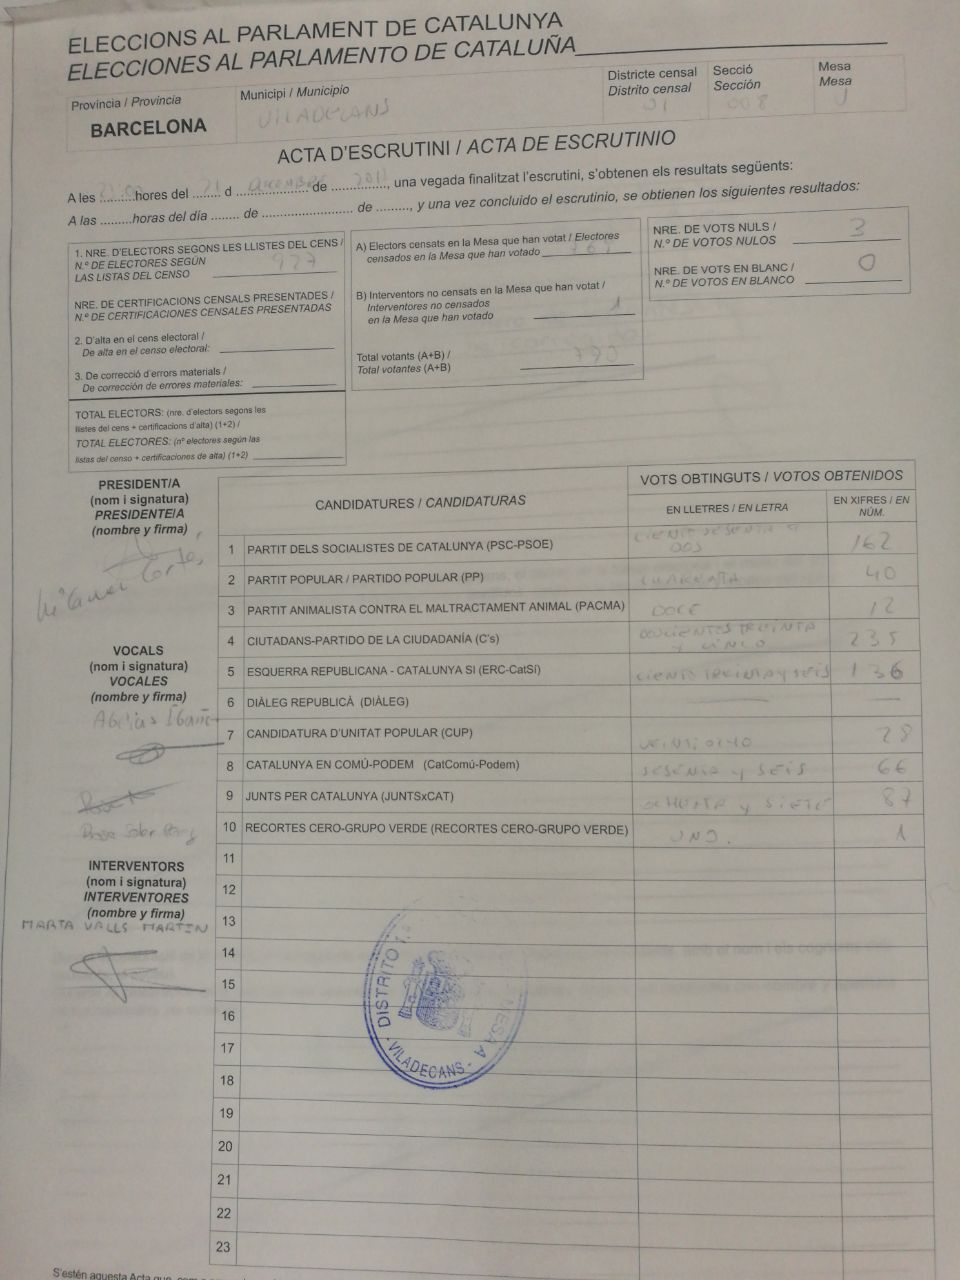 ELECCIONS AL PARLAMENT DE CATALUNYA
ELECCIONES AL PARLAMENTO DE CATALUÑA
Província / Provincia
BARCELONA
Municipi / Municipio
VILADECANS
Districte censal
Distrito censal
01
Secció
Sección
008
Mesa
Mesa
ACTA D'ESCRUTINI / ACTA DE ESCRUTINIO
A les ......... hores del 21 d ......... de ........., una vegada finalitzat l'escrutini, s'obtenen els resultats següents:
A las .........horas del día ........ de ........................ de ........., y una vez concluido el escrutinio, se obtienen los siguientes resultados:
1. NRE. D'ELECTORS SEGONS LES LLISTES DEL CENS /
N.º DE ELECTORES SEGÚN
LAS LISTAS DEL CENSO
NRE. DE CERTIFICACIONS CENSALS PRESENTADES /
N.º DE CERTIFICACIONES CENSALES PRESENTADAS
2. D'alta en el cens electoral /
De alta en el censo electoral:
3. De correcció d'errors materials /
De corrección de errores materiales:
TOTAL ELECTORS: (nre. d'electors segons les
llistes del cens + certificacions d'alta) (1+2) /
TOTAL ELECTORES: (nº electores según las
listas del censo + certificaciones de alta) (1+2)
A) Electors censats en la Mesa que han votat / Electores
censados en la Mesa que han votado
B) Interventors no censats en la Mesa que han votat /
Interventores no censados
en la Mesa que han votado 1
Total votants (A+B) /
Total votantes (A+B) 790
NRE. DE VOTS NULS /
N.º DE VOTOS NULOS 3
NRE. DE VOTS EN BLANC /
N.º DE VOTOS EN BLANCO 0
PRESIDENT/A
(nom i signatura)
PRESIDENTE/A
(nombre y firma)
VOCALS
(nom i signatura)
VOCALES
(nombre y firma)
INTERVENTORS
(nom i signatura)
INTERVENTORES
(nombre y firma)
MARTA VALLS MARTIN
CANDIDATURES / CANDIDATURAS
VOTS OBTINGUTS / VOTOS OBTENIDOS
EN LLETRES / EN LETRA
EN XIFRES / EN NÚM.
1 PARTIT DELS SOCIALISTES DE CATALUNYA (PSC-PSOE) CIENTO SESENTA Y DOS 162
2 PARTIT POPULAR / PARTIDO POPULAR (PP) CUARENTA 40
3 PARTIT ANIMALISTA CONTRA EL MALTRACTAMENT ANIMAL (PACMA) DOCE 12
4 CIUTADANS-PARTIDO DE LA CIUDADANÍA (C's) DOSCIENTOS TREINTA Y CINCO 235
5 ESQUERRA REPUBLICANA - CATALUNYA SI (ERC-CatSí) CIENTO TREINTA Y SEIS 136
6 DIÀLEG REPUBLICÀ (DIÀLEG)
7 CANDIDATURA D'UNITAT POPULAR (CUP) VEINTIOCHO 28
8 CATALUNYA EN COMÚ-PODEM (CatComú-Podem) SESENTA y SEIS 66
9 JUNTS PER CATALUNYA (JUNTSxCAT) OCHENTA y SIETE 87
10 RECORTES CERO-GRUPO VERDE (RECORTES CERO-GRUPO VERDE) UNO. 1
11
12
13
14
15
16
17
18
19
20
21
22
23
DISTRITO MESA A
VILADECANS